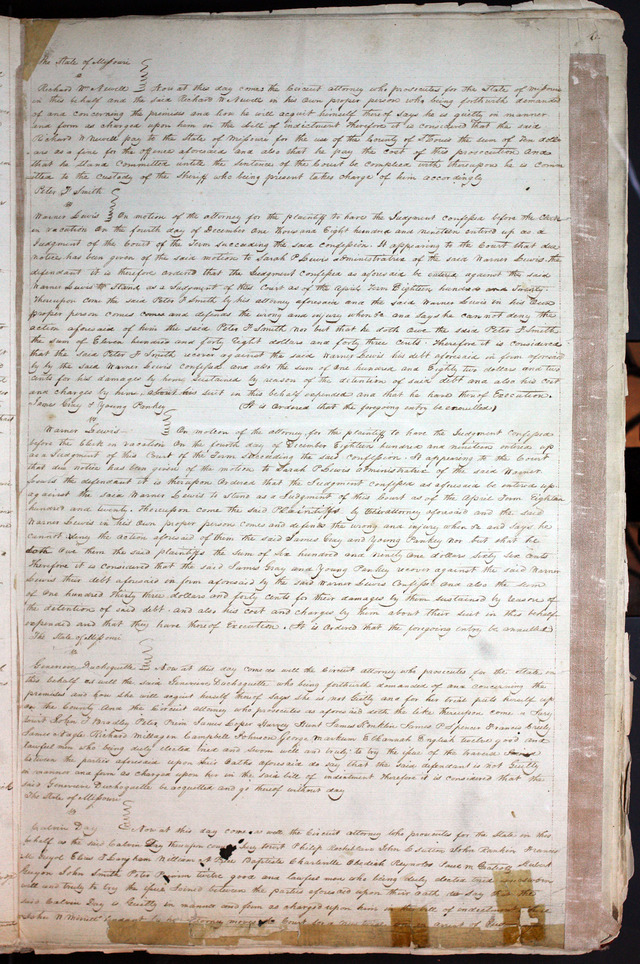 The State of Missouri
vs
Richard W Newell Now at this day comes the Circuit attorney who prosecutes for the State of Missouri
in this behalf and the said Richard W Newell in his own proper person who being forthwith demanded
of and concerning the premises and how he will acquit himself thereof says he is guilty in manner
and form as charged upon him in the bill of indictment Therefore it is considered that the said
Richard W Newell pay to the State of Missouri for the use of the County of St Louis the sum of Ten dollars
as a fine for the offence aforesaid and also that he pay the Cost of this prosecution And
that he Stand Committed until the Sentence of the Court be complied with Thereupon he is comm
itted to the Custody of the Sheriff who being present takes charge of him accordingly
Peter F Smith
vs
Warner Lewis On motion of the attorney for the plaintiff to have the Judgment confessed before the Clerk
in vacation On the fourth day of December One thousand Eight hundred and nineteen entered up as a
Judgment of the Court of the Term succeeding the said confession. It appearing to the Court that due
notice has been given of the said motion to Sarah P Lewis administratrix of the said Warner Lewis the
defendant it is therefore ordered that the Judgment confessed as aforesaid be entered against the said
Warner Lewis to Stand as a Judgment of this Court as of the April Term Eighteen hundred and Twenty
Thereupon come the said Peter F Smith by his attorney aforesaid and the said Warner Lewis in his Own
proper person comes and defends the wrong and injury when &c and Says he cannot deny the
action aforesaid of him the said Peter F Smith Nor but that he doth owe the said Peter F Smith
the sum of Eleven hundred and forty Eight dollars and forty three Cents Therefore it is considered
that the said Peter F Smith recover against the said Warner Lewis his debt aforesaid in form aforesaid
by the said Warner Lewis confessed and also the sum of One hundred and Eighty two dollars and two
Cents for his damages by him sustained by reason of the detention of said debt and also his Cost
and charges by him about his suit in this behalf expended and that he have thereof Execution.
James Gray & Young Pankey (It is Ordered that the foregoing entry be annulled)
vs
Warner Lewis On motion of the attorney for the plaintiff to have the Judgment Confessed
before the Clerk in vacation On the fourth day of December Eighteen hundred and nineteen entered up
as a Judgment of this Court of the Term succeeding the said Confession. It appearing to the Court
that due notice has been given of the motion to Sarah P Lewis administratrix of the said Warner
Lewis the defendant it is thereupon Ordered that the Judgment confessed as aforesaid be entered up
against the said Warner Lewis to Stand as a Judgment of this Court as of the April Term Eighteen
hundred and twenty. Thereupon come the said Plaintiffs by their attorney aforesaid and the said
Warner Lewis in his Own proper persons comes and defends the wrong and injury when &c and Says he
cannot deny the action aforesaid of them the said James Gray and Young Pankey Nor but that he
doth Owe them the said plaintiffs the Sum of Six hundred and Ninety One dollars Sixty Six Cents
Therefore it is considered that the said James Gray and Young Pankey recover against the said Warner
Lewis their debt aforesaid in form aforesaid by the said Warner Lewis Confessed and also the sum
of One hundred Thirty three dollars and forty cents for their damages by them sustained by reason of
the detention of said debt and also his cost and charges by them about their suit in this behalf
expended and that they have thereof Execution. (It is Ordered that the foregoing entry be annulled)
The State of Missouri
vs
Genevieve Duchoquette Now at this day come as well the Circuit attorney who prosecutes for the State in
this behalf as well the said Genevieve Duchoquette who being forthwith demanded of and concerning the
premises and how she will acquit herself thereof Says She is not Guilty and for her trial puts herself up
on the County And the Circuit attorney who prosecutes as aforesaid doth the like thereupon come a Jury
towit John Bradley Peter Primm James Lopez Harvey Hunt James Conklin James P Spencer Francis
James Nagle Richard Milligan Campbell Johnson George Markum & Elkannah English twelve good and
lawful men who being duly elected tried and sworn well and truly to try the issue of the traverse Joined
between the parties aforesaid upon their Oaths aforesaid do say that the Said defendant is not Guilty
in manner and form as charged upon her in the said bill of indictment Therefore it is considered that the
said Genevieve Duchoquette be acquitted and go thereof without day
The State of Missouri
vs
Calvin Day Now at this day come as well the Circuit attorney who prosecutes for the State in this
behalf as the said Calvin Day thereupon comes a Jury towit Philip Rocheblave John C Sutton John Rankin Francis
Elias T Langham William A Baptiste Charleville Obediah Reynolds Paul M Gratiot
Guyon John Smith Peter Primm twelve good and lawful men who being duly elected tried and sworn
well and truly to try the issue Joined between the parties aforesaid upon their oath do Say that the
said Calvin Day is Guilty in manner and form as charged upon him in the bill of indictment
John W